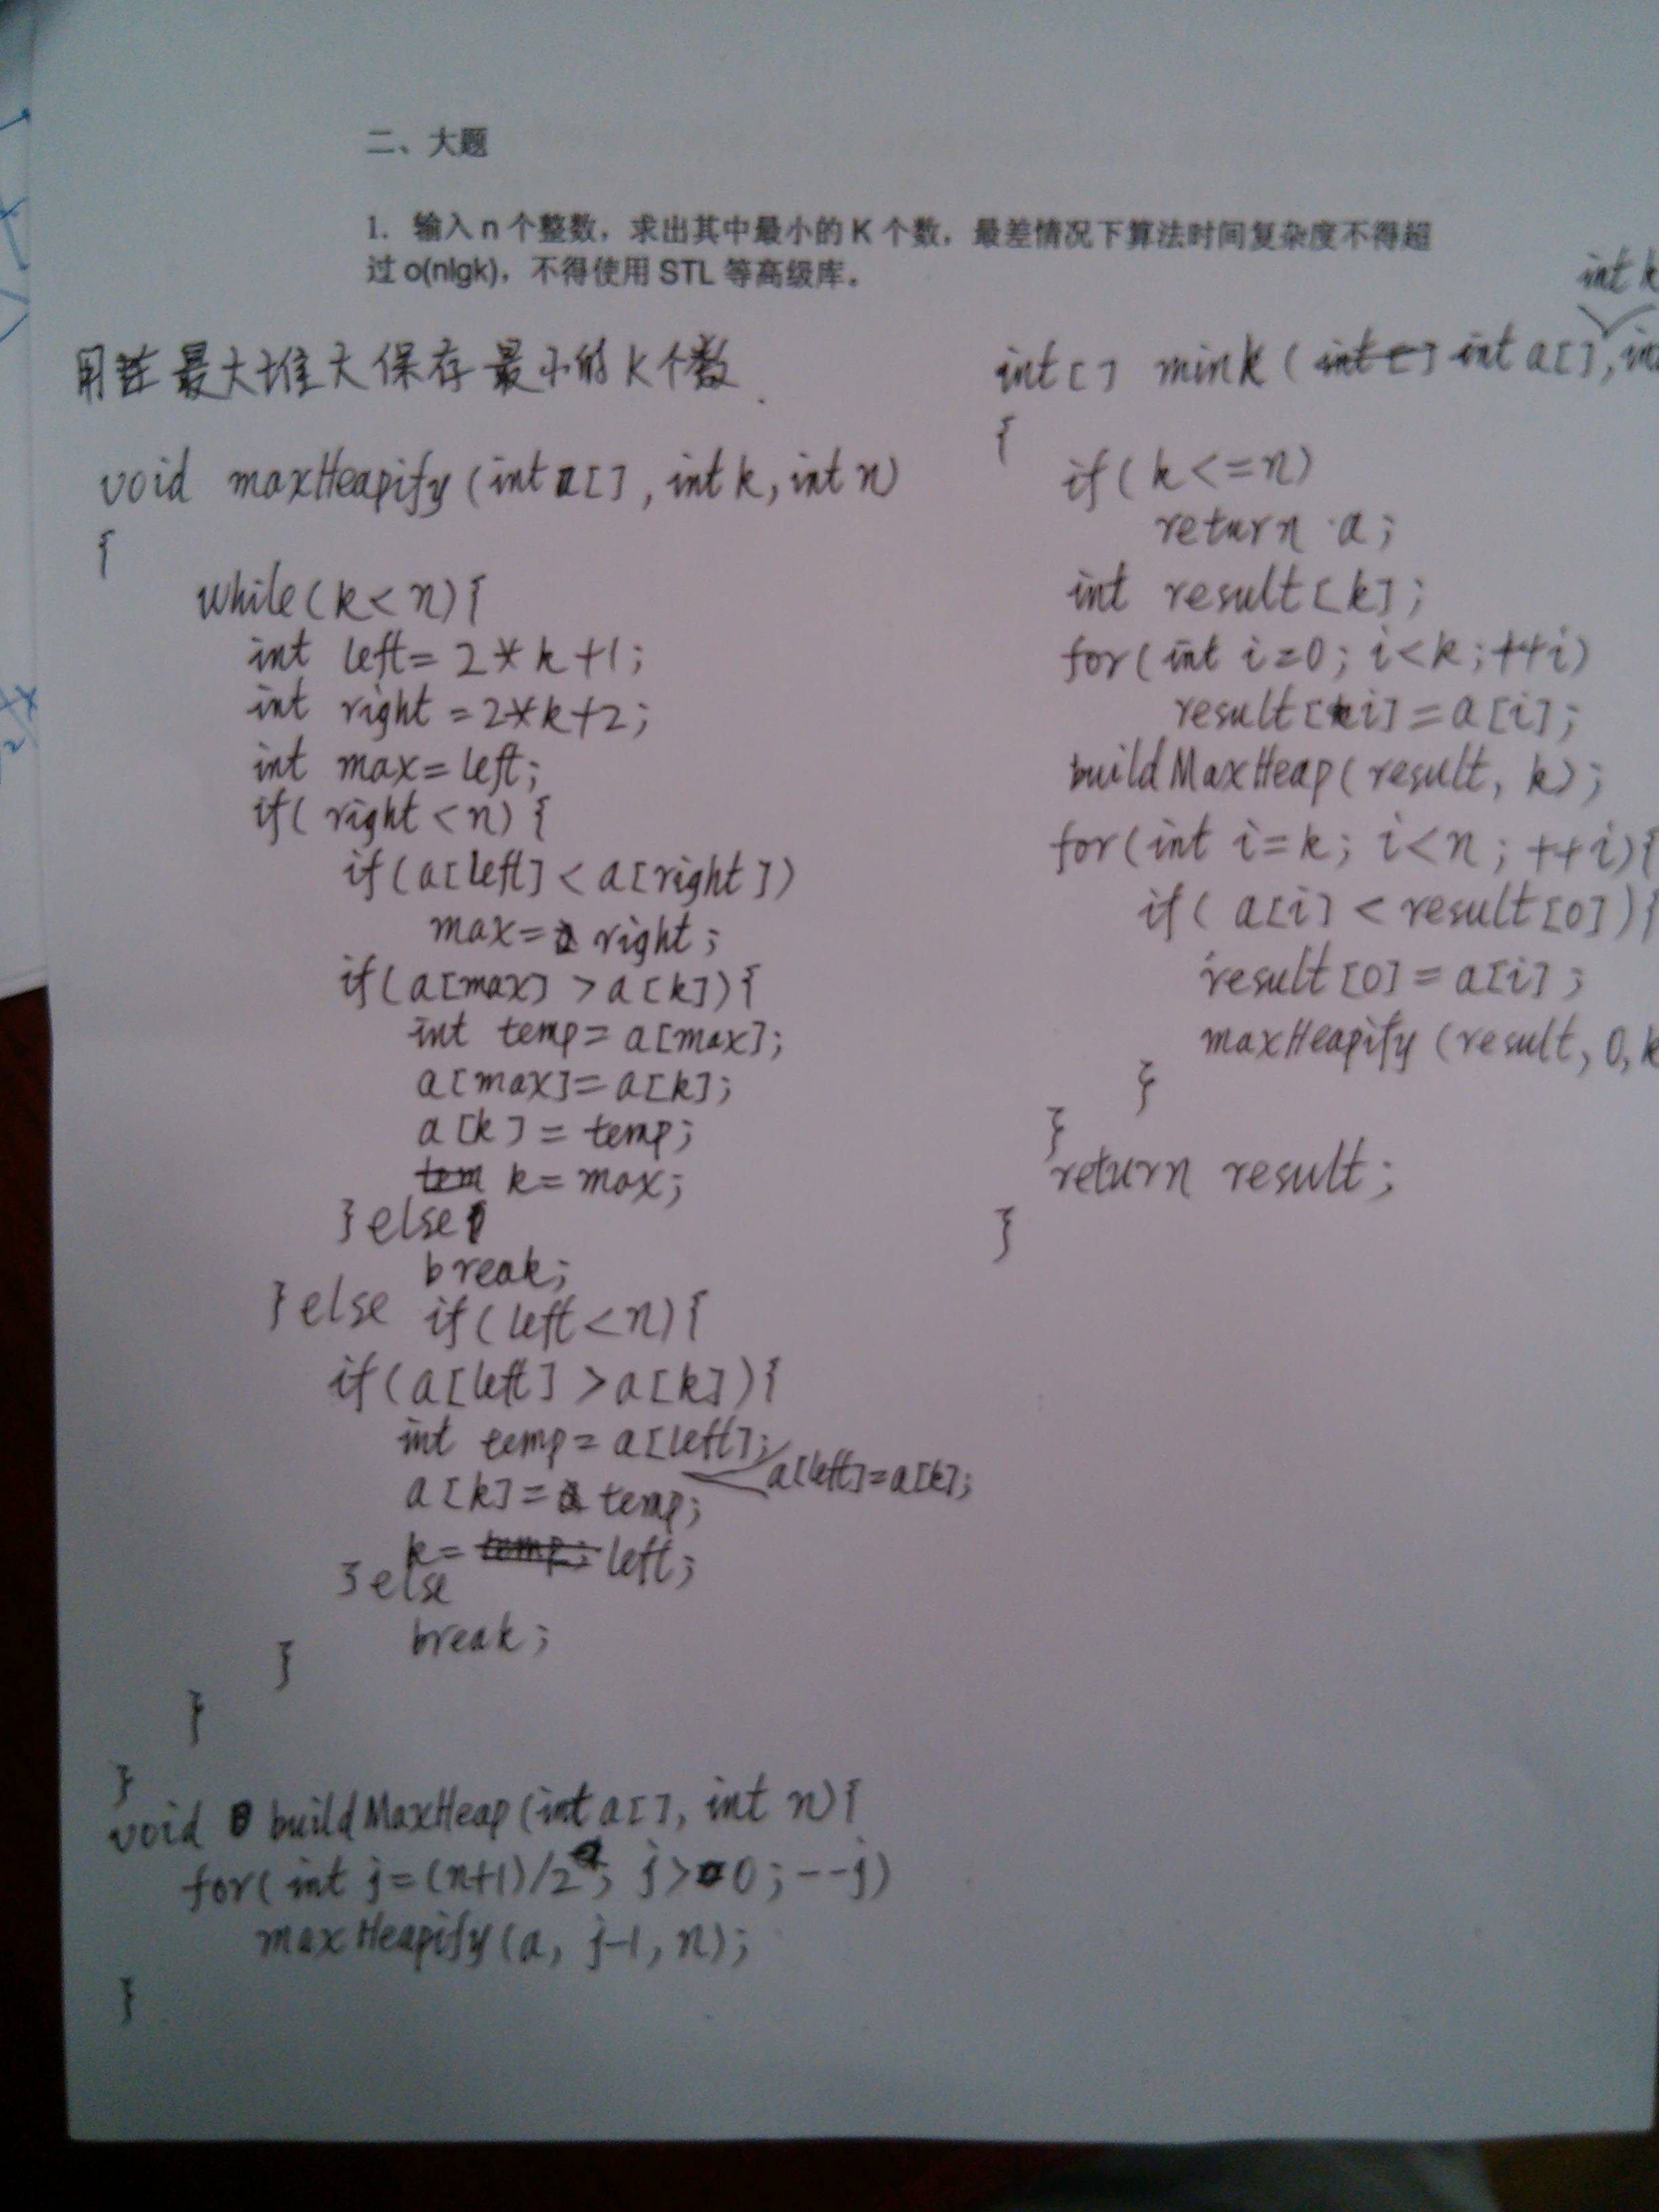 二、大题
1. 输入 n 个整数，求出其中最小的 K 个数，最差情况下算法时间复杂度不得超
过 o(nlgk)，不得使用 STL 等高级库。
最大堆 保存最小的K个数.
void maxHeapify (int a[], int k, int n)
{
while(k<n){
int left=2*k+1;
int right=2*k+2;
int max=left;
if(right<n){
if(a[left]<a[right])
max=right;
if(a[max]>a[k]){
int temp=a[max];
a[max]=a[k];
a[k]=temp;
k=max;
}else
break;
}else if(left<n){
if(a[left]>a[k]){
int temp=a[left];
a[left]=a[k];
a[k]=temp;
k=left;
}else
break;
}
}
}
void buildMaxHeap(int a[], int n){
for(int j=(n+1)/2; j>0; --j)
maxHeapify(a, j-1, n);
}
int k
int[] mink (int a[],
{
if(k<=n)
return a;
int result[k];
for(int i=0; i<k; ++i)
result[i]=a[i];
buildMaxHeap(result, k);
for(int i=k; i<n; ++i){
if(a[i]<result[0]){
result[0]=a[i];
maxHeapify(result, 0, k
}
}
return result;
}